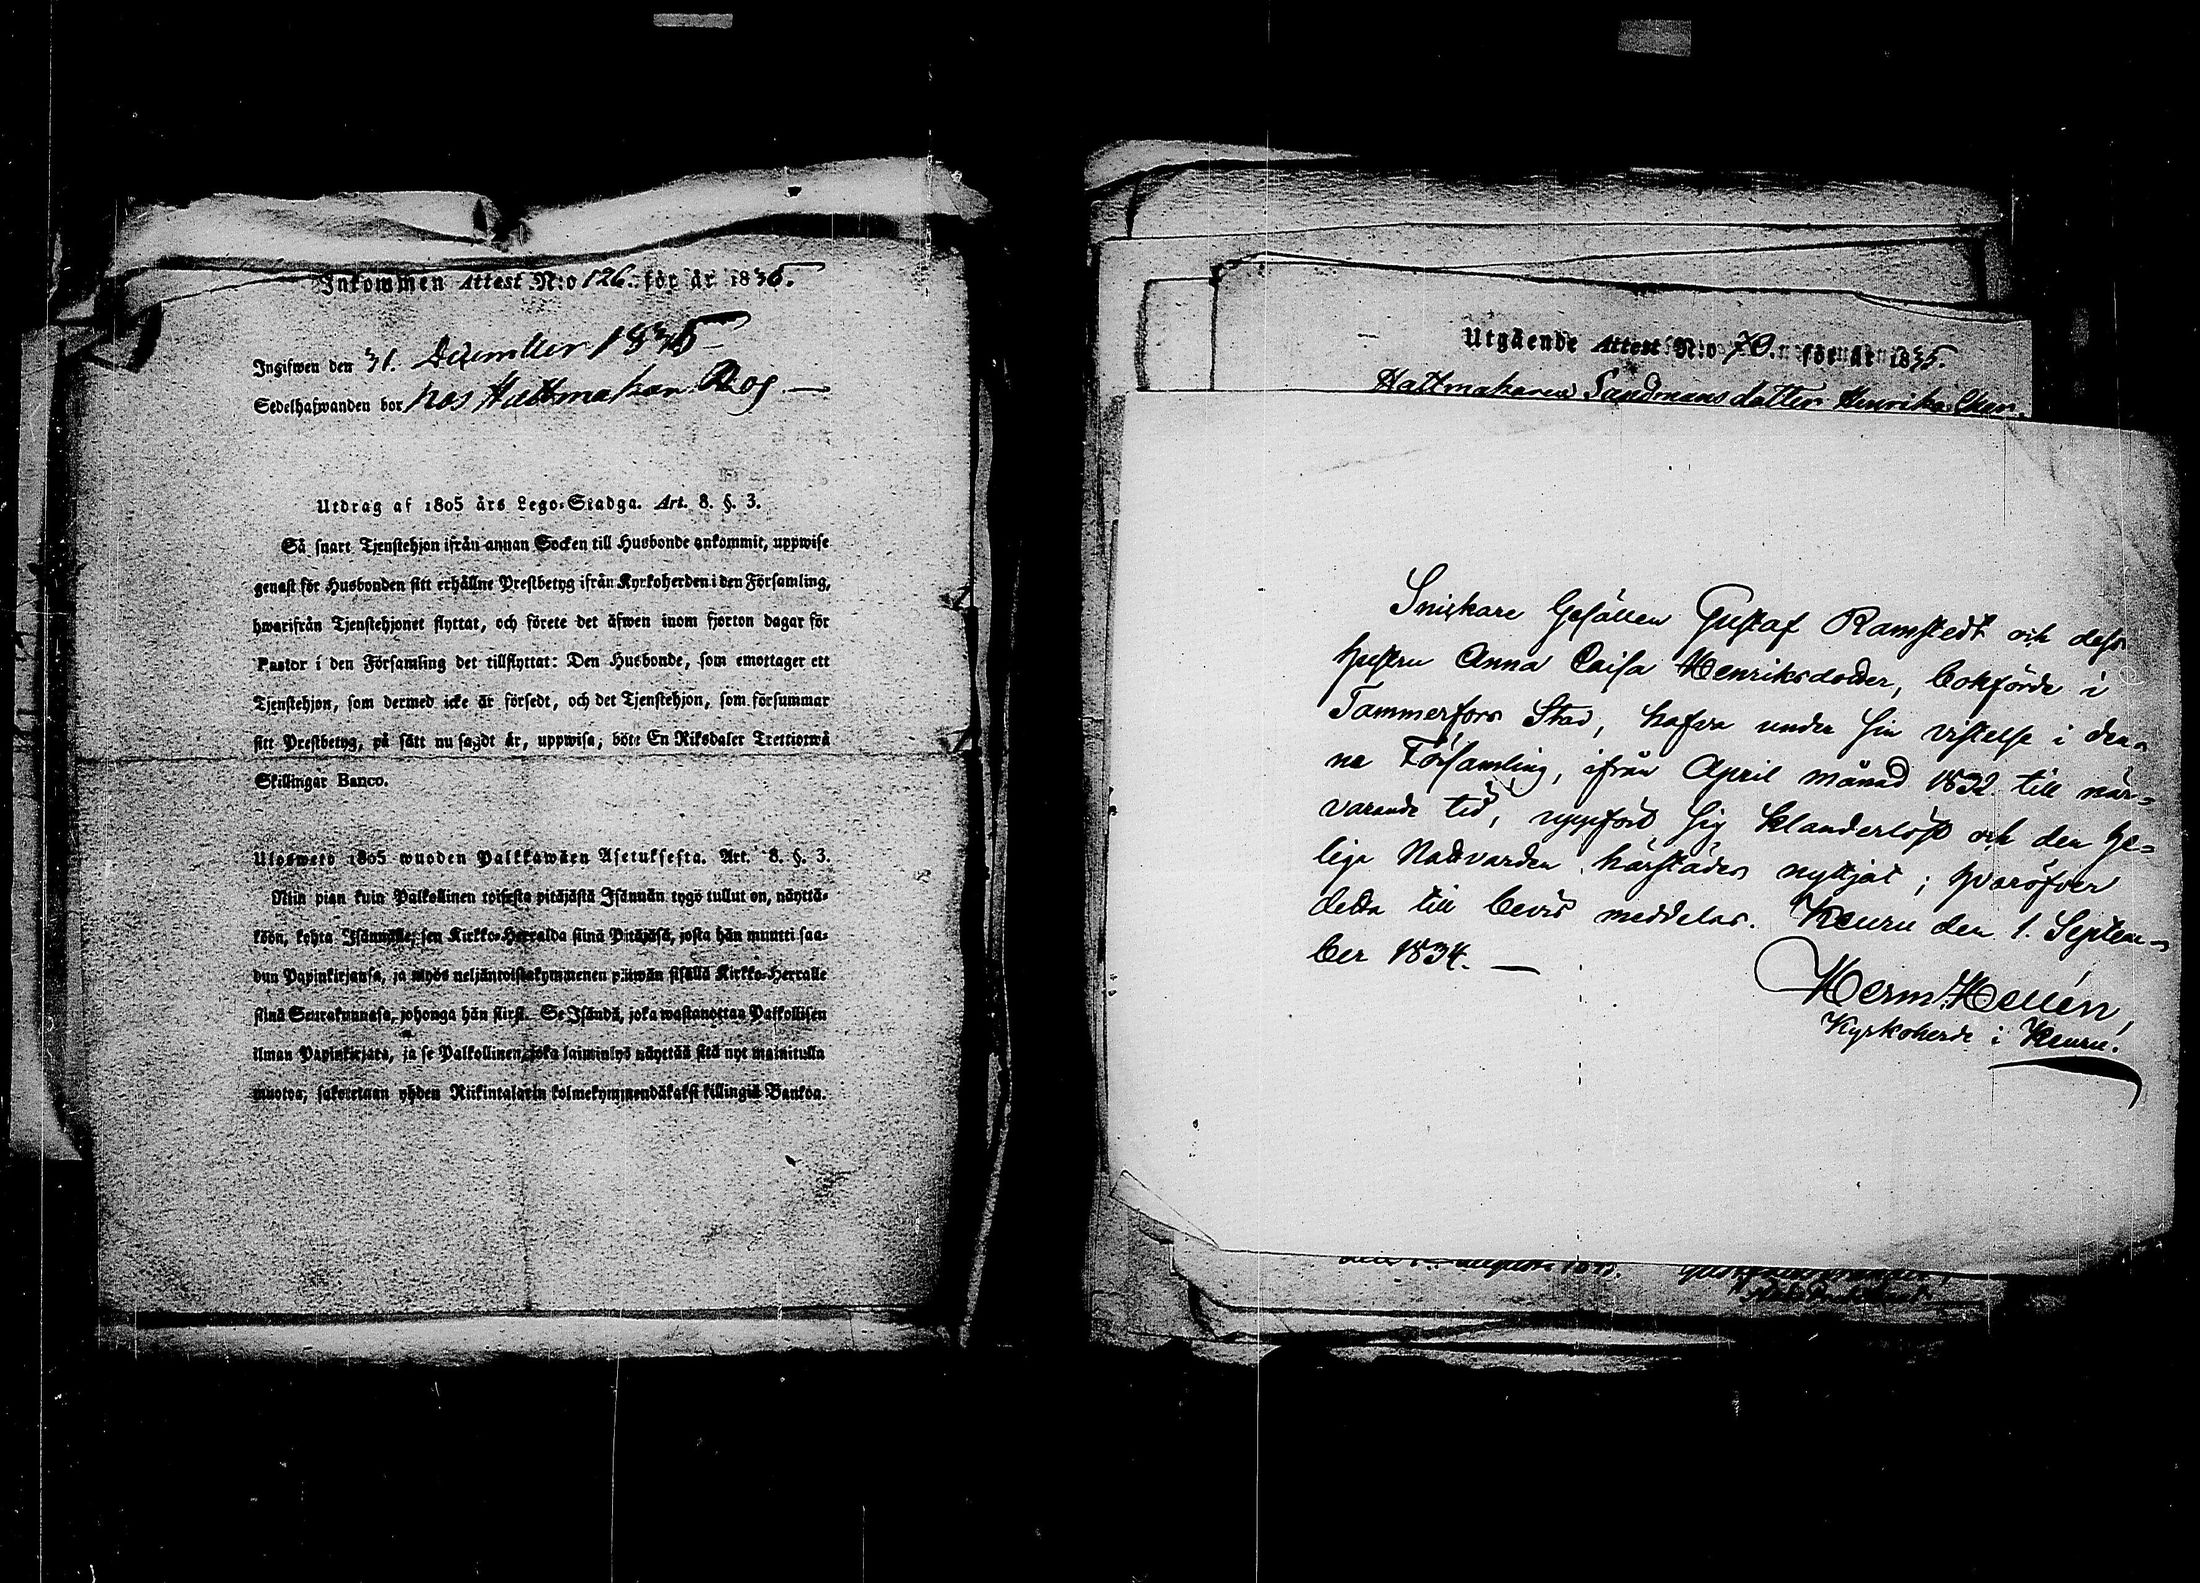 Inkommen Attest N:o 126. för år 1835.
Ingifwen den 31. December 1835
Sedelhafwanden bor hos Hattmakar Roos
Utdrag af 1805 års Lego-Stadga. Art. 8. §. 3.
Så snart Tjenstehjon ifrån annan Socken till Husbonde ankommit, uppwise
genast för Husbonden sitt erhållne Prestbetyg ifrån Kyrkoherden i den Församling,
hwarifrån Tjenstehjonet flyttat, och förete det äfwen inom fjorton dagar för
Pastor i den Församling det tillflyttat: Den Husbonde, som emottager ett
Tjenstehjon, som dermed icke är försedt, och det Tjenstehjon, som försummar
sitt Prestbetyg, på sätt nu sagdt är, uppwisa, böte En Riksdaler Trettiotwå
Skillingar Banco.
Ulosweto 1805 wuoden Palkkawäen Asetuksesta. Art. 8. §. 3.
Niin pian kuin Palkollinen toisesta pitäjästä Isännän tygö tullut on, näyttä-
köön, kohta Isännälle, sen Kirkko-Herralda siinä Pitäjäsä, josta hän muutti saa-
dun Papinkirjansa, ja myös neljäntoistakymmenen päiwän sisällä Kirkko-Herralle
siinä Seurakunnasa, johonga hän siirsi. Se Isändä, joka wastanottaa Palkollisen
ilman Papinkirjata, ja se Palkollinen, joka laiminlyö näyttää sitä nyt mainitulla
muotoa, sakotetaan yhden Riikintalarin kolmekymmendäkaksi killingiä Bankoa.
Utgående Attest N:o 70. för år 1835.
Hattmakaren Sandmans dotter Henrika Char.
Snickare Gesällen Gustaf Ramstedt och dess
hustru Anna Caisa Henriksdotter, bokförde i
Tammerfors Stad, hafva under sin vistelse i den-
na Församling, ifrån April månad 1832 till när-
varande tid, uppfört sig klanderlöst och den he-
lige Nattvarden härstädes nyttjat; hvaröfver
detta till bevis meddelas. Keuru den 1. Septem-
ber 1834.
Herm. Hellén,
Kyrkoherde i Keuru.